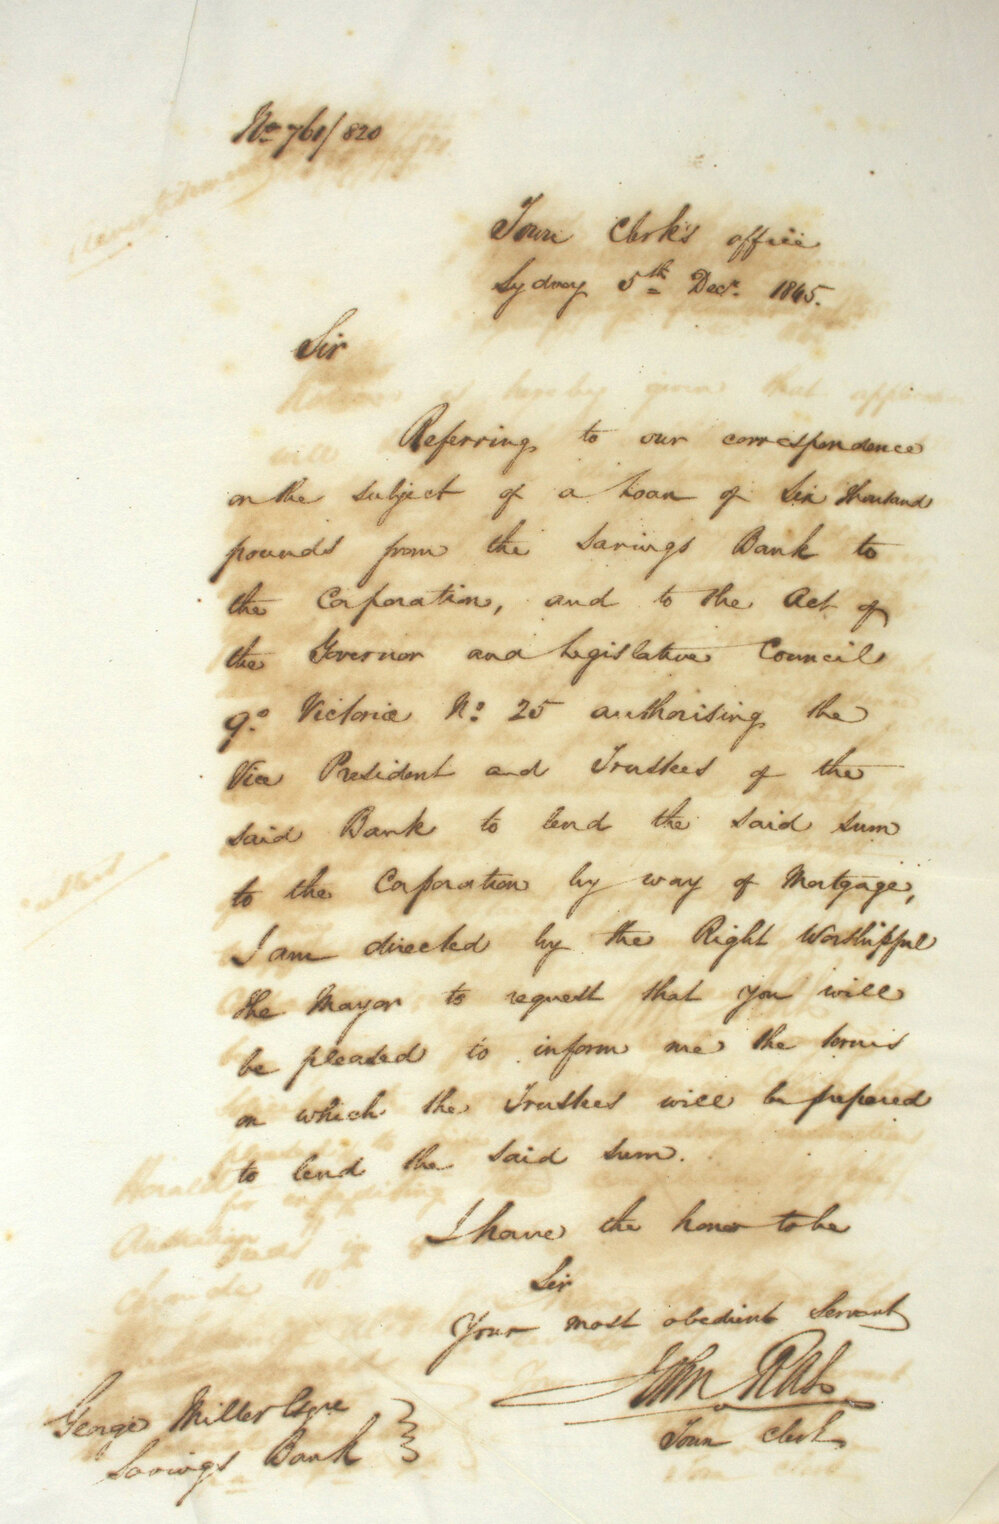 No. 760/820
Town Clerk's office
Sydney 5th Decr. 1845.
Sir
Referring to our correspondence
on the subject of a Loan of Six thousand
pounds from the Savings Bank to
the Corporation, and to the Act of
the Governor and Legislative Council
9o Victoria No. 25 authorising the
Vice President and Trustees of the
said Bank to lend the said sum
to the Corporation by way of Mortgage,
I am directed by the Right Worshipful
the Mayor to request that you will
be pleased to inform me the terms
on which the Trustees will be prepared
to lend the said sum.
I have the honor to be
Sir
Your most obedient Servant
John Rae
Town Clerk
George Miller Esqre
Savings Bank